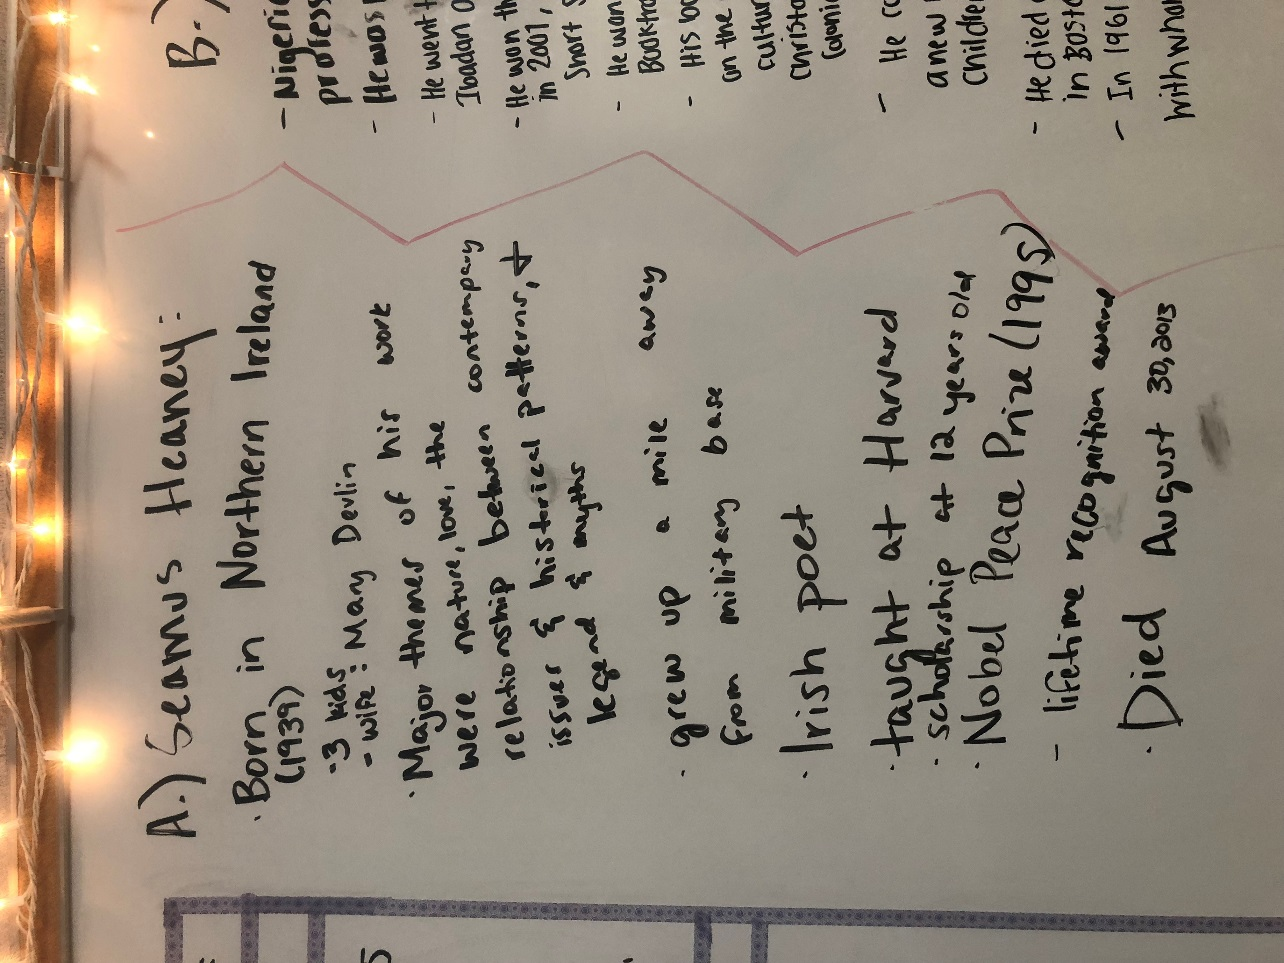 A.) Seamus Heaney:
· Born in Northern Ireland
(1939)
- 3 kids
- wife: Mary Devlin
· Major themes of his work
were nature, love, the
relationship between contempary
issues & historical patterns, +
legend & myths
· grew up a mile away
from military base
· Irish poet
· taught at Harvard
· scholarship at 12 years old
· Nobel Peace Prize (1995)
- lifetime recognition award
· Died August 30, 2013
B.)
- Nigeri
profess
- He was
- He went t
Ibadan
- He won th
in 2007,
Short S
- He won
Booktra
- His bo
on the
cultur
Christ
Colonia
- He co
a new
childre
- He died
in Bost
- In 1961
with who
5